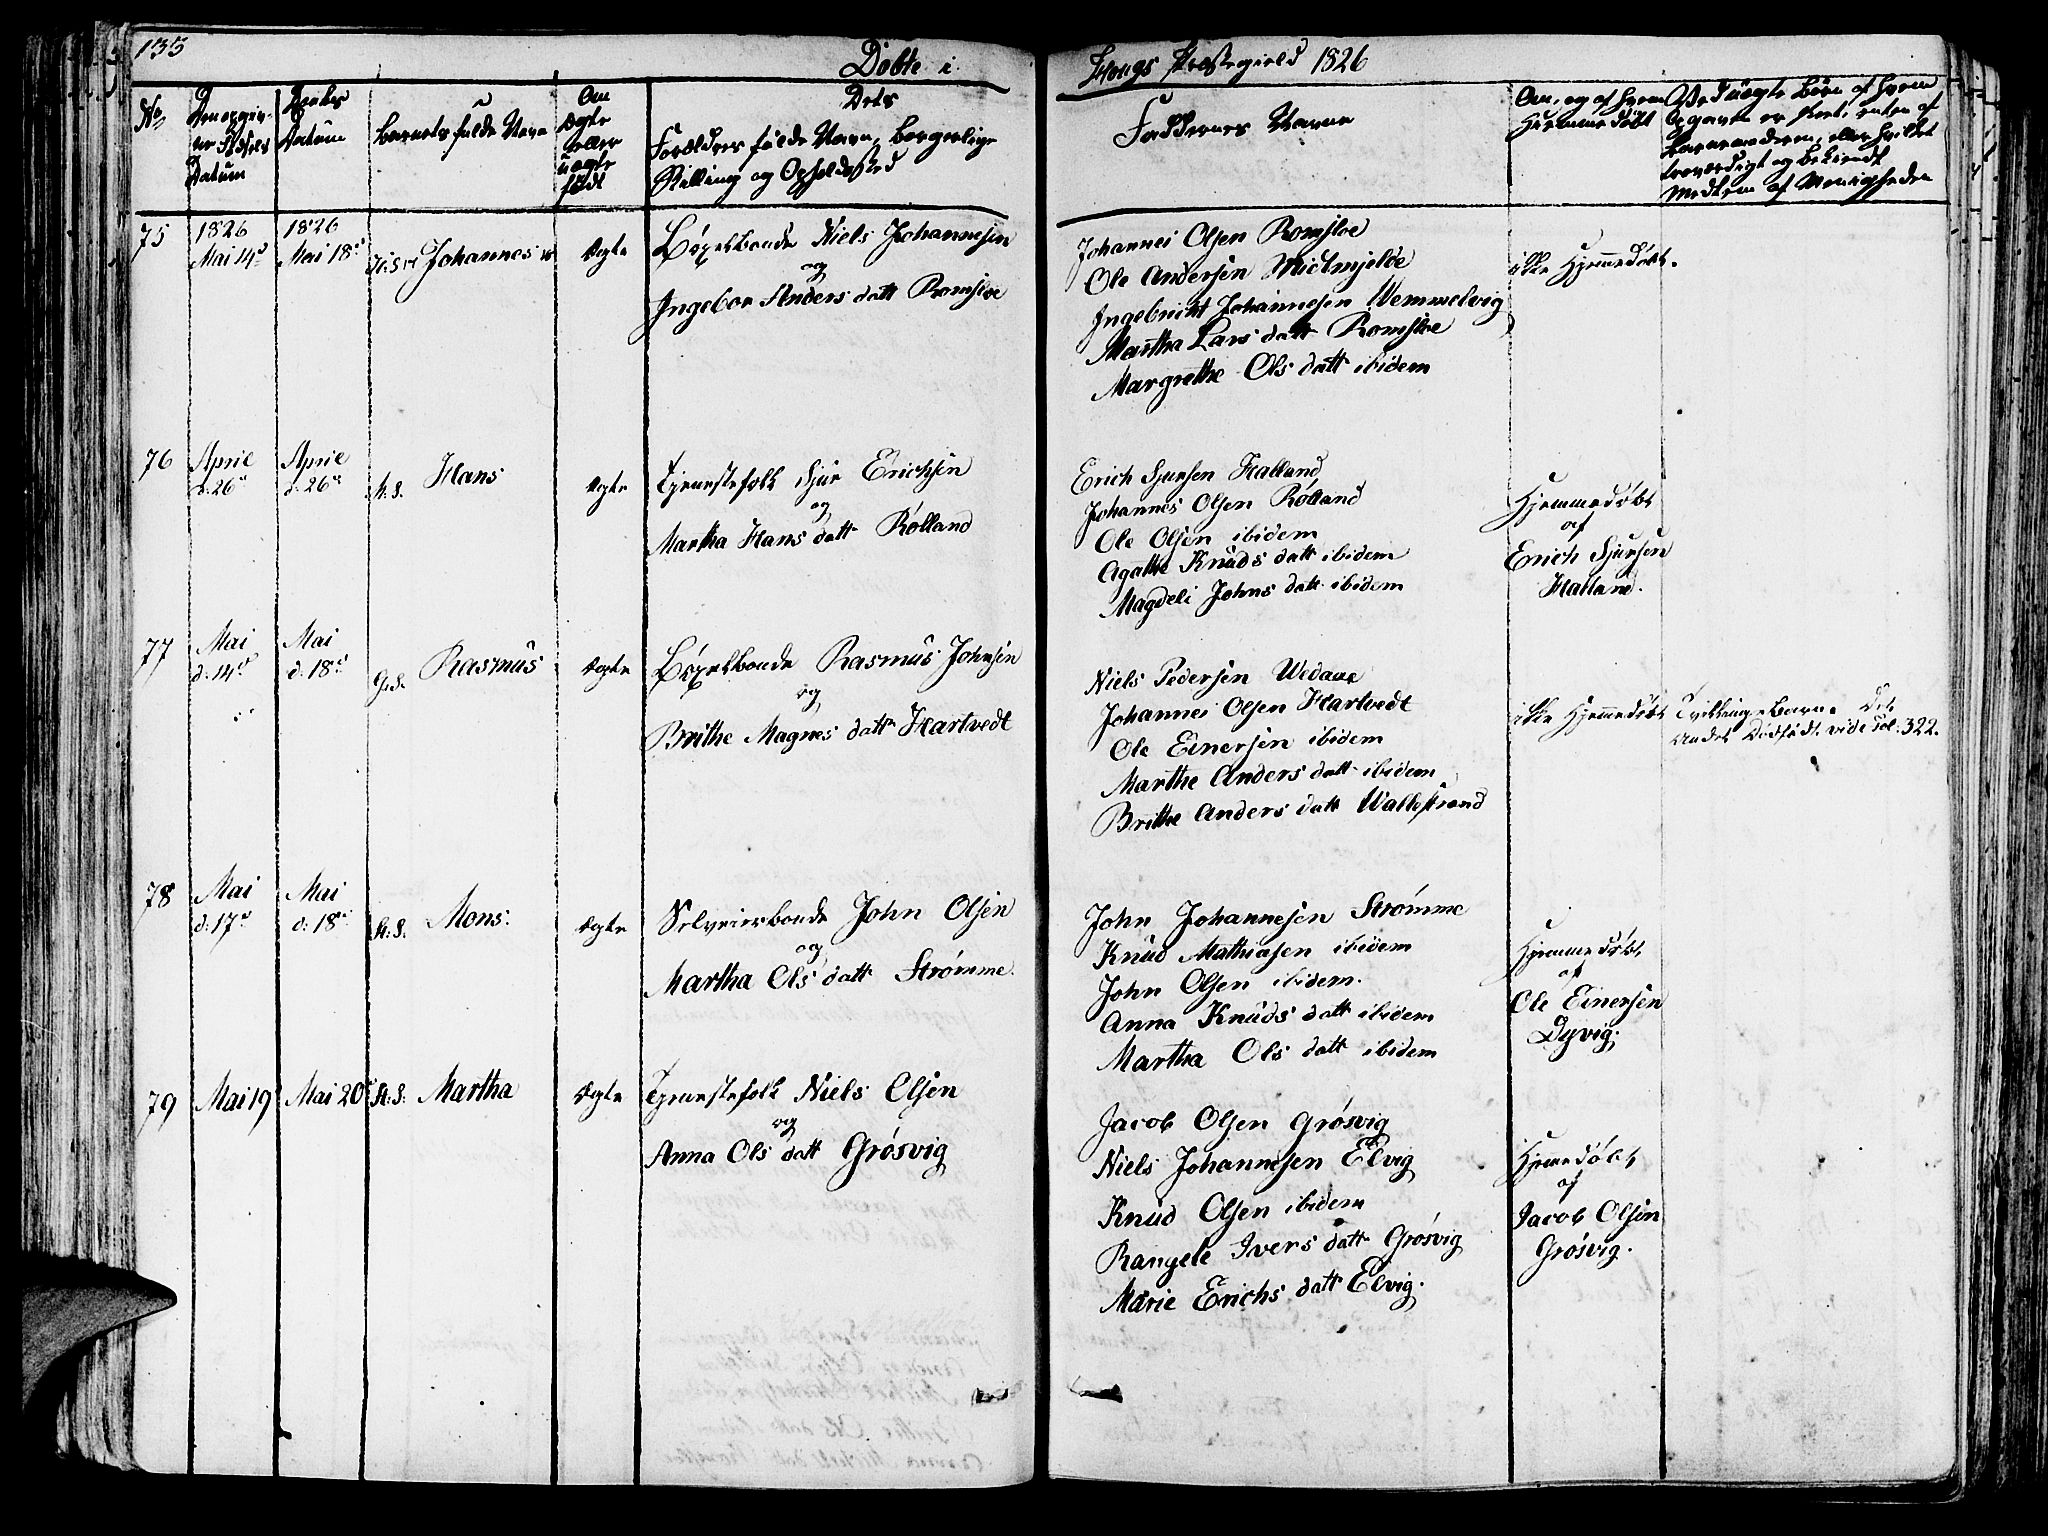 135
Döbte i
Hougs Præstegield 1826
No
Den opgiv-
ne Fødsels
Datum
Daabs
Datum
Barnets fulde Navn
Om
Ægte
eller
uægte
født
Dets
Forældres fulde Navn, borgerlige
Stilling og Opholdssted
Faddernes Navne
Om, og af hvem
Hjemmedöbt
Ved uægte Börn af hvem
Opgaven er skeet, enten af
Barnemoderen, eller hvilket
troværdigt og bekiendt
Medlem af Menigheden
75
1826
Mai 14d
1826
Mai 18d
Johannes
Ægte
Böxelbonde Niels Johannesen
og
Ingebor Anders datt Romsloe
Johannes Olsen Romsloe
Ole Andersen Mictmjelde
Ingebricht Johannesen Wemmelvig
Martha Lars datt Romsloe
Margrethe Ols datt ibidem
ikke Hjemmedöbt.
76
April
d: 26d
April
d: 26d
H. S.
Hans
Ægte
Tjenestefolk Sjur Erichsen
og
Martha Hans datt Rølland
Erich Sjursen Halland
Johannes Olsen Rølland
Ole Olsen ibidem
Agathe Knuds datt ibidem
Magdeli Johns datt ibidem
Hjemmedöbt
af
Erich Sjursen
Halland.
77
Mai
d: 14d
Mai
d: 18d
G. S.
Rasmus
Ægte
Böxelbonde Rasmus Johnsen
og
Brithe Magnes datt Hartvedt
Niels Pedersen Wedaae
Johannes Olsen Hartvedt
Ole Einersen ibidem
Marthe Anders datt ibidem
Brithe Anders datt Wallestrand
ikke Hjemmedöbt
Tvillingebarn. Det
andet Dødfødt vide fol: 322.
78
Mai
d: 17d
Mai
d: 18d
H: S.
Mons:
Ægte
Selveierbonde John Olsen
og
Martha Ols datt Strømme.
John Johannesen Strømme
Knud Mathiasen ibidem
John Olsen ibidem.
Anna Knuds datt ibidem
Martha Ols datt ibidem
Hjemmedöbt
af
Ole Einersen
Dyvig.
79
Mai 19d
Mai 20d
H: S:
Martha
Ægte
Tjenestefolk Niels Olsen
og
Anna Ols datt Grøsvig
Jacob Olsen Grøsvig
Niels Johannesen Elvig
Knud Olsen ibidem
Rangele Ivers datt Grøsvig
Marie Erichs datt Elvig.
Hjemedöbt
af
Jacob Olsen
Grøsvig.